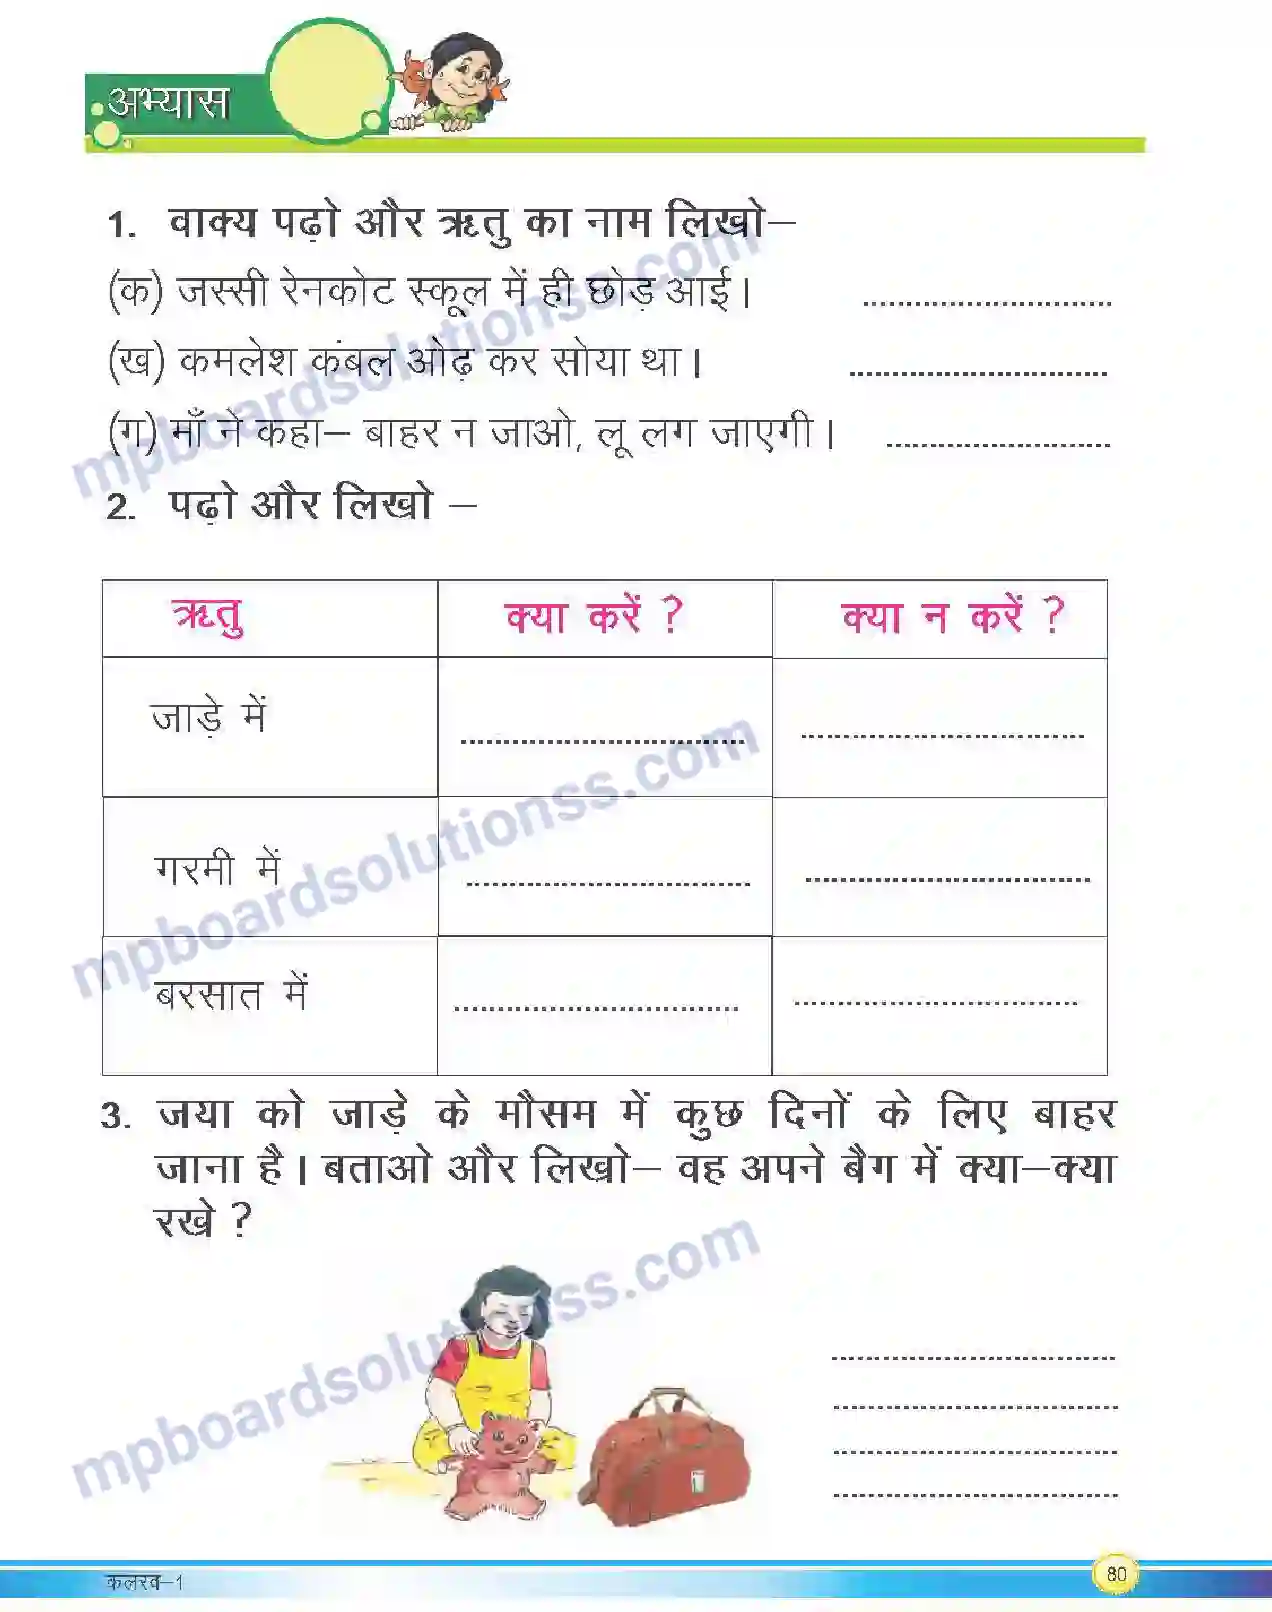 अभ्यास
1. वाक्य पढ़ो और ऋतु का नाम लिखो–
(क) जस्सी रेनकोट स्कूल में ही छोड़ आई। ............................
(ख) कमलेश कंबल ओढ़ कर सोया था। .............................
(ग) माँ ने कहा– बाहर न जाओ, लू लग जाएगी। .........................
2. पढ़ो और लिखो –
ऋतु क्या करें ? क्या न करें ?
जाड़े में ................................ ................................
गरमी में ................................ ................................
बरसात में ................................ ................................
3. जया को जाड़े के मौसम में कुछ दिनों के लिए बाहर
जाना है। बताओ और लिखो– वह अपने बैग में क्या–क्या
रखे ?
................................
................................
................................
................................
कलरव–1
80
mpboardsolutionss.com
mpboardsolutionss.com
mpboardsolutionss.com